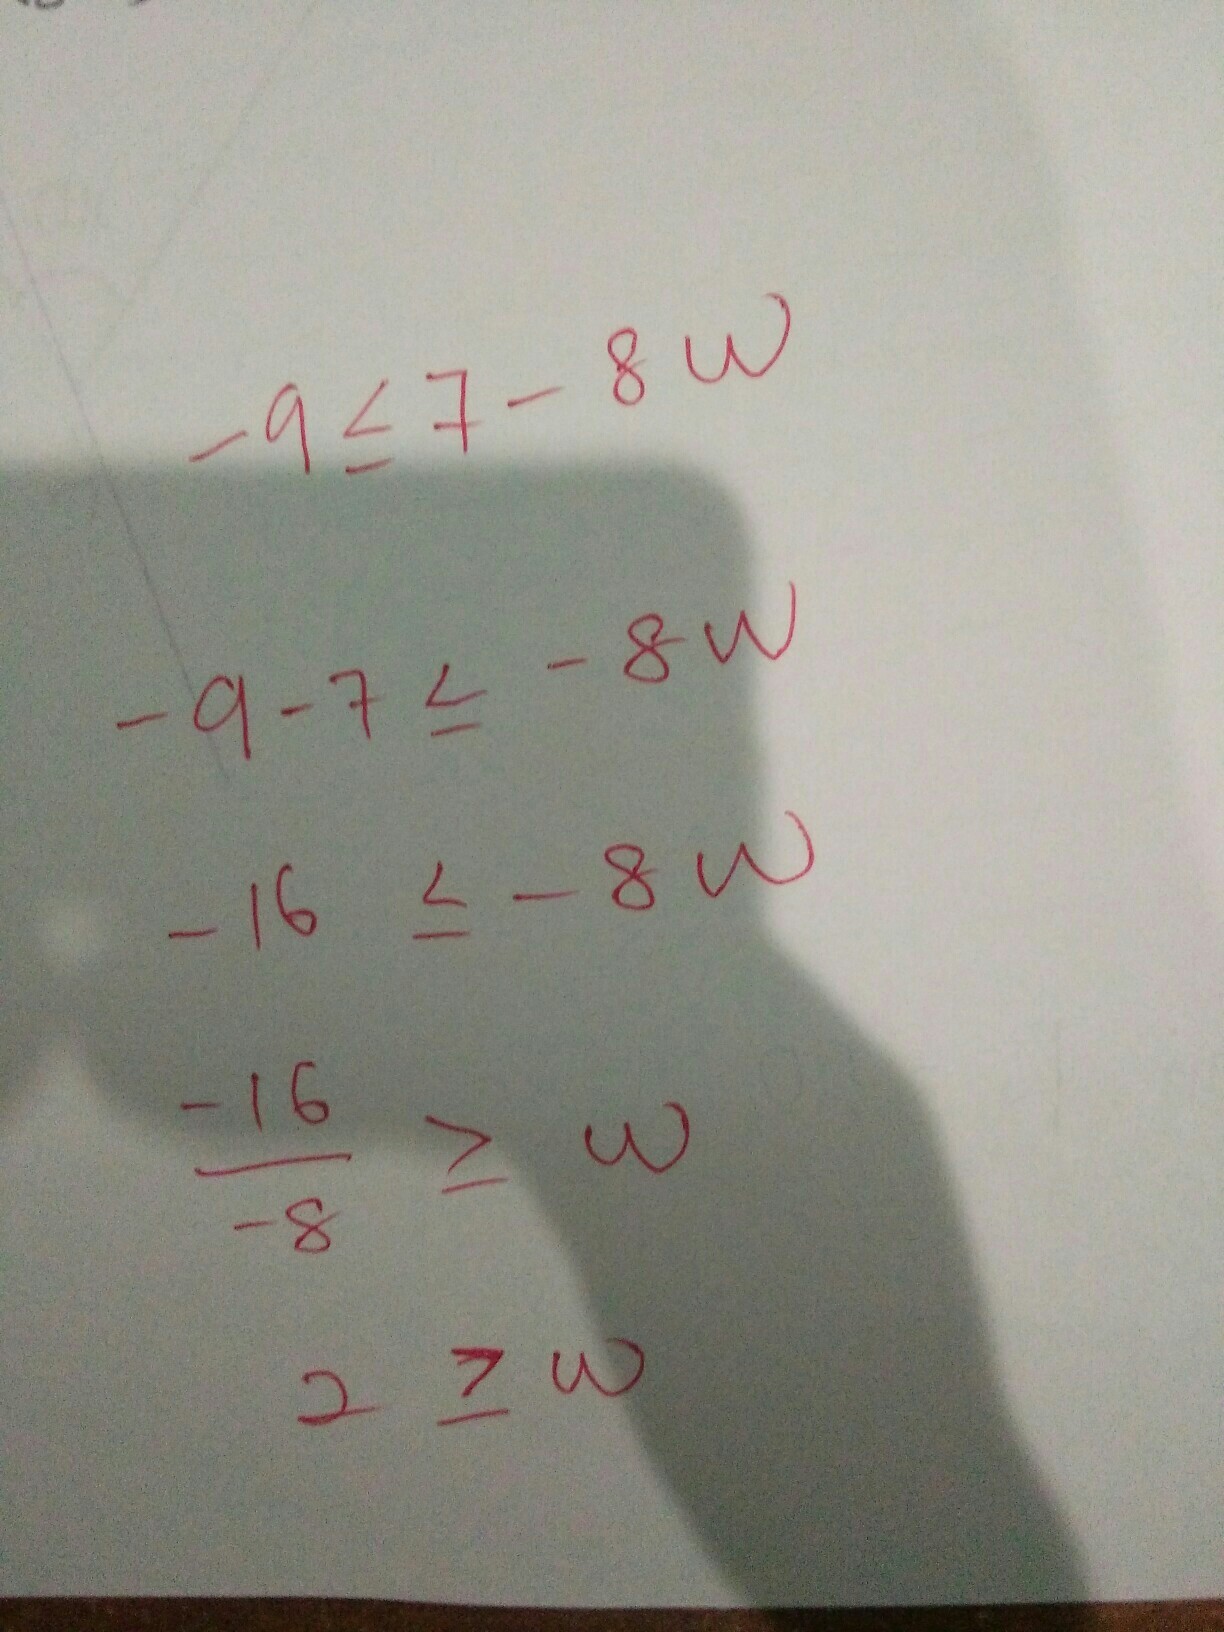 -9 ≤ 7 - 8w
-9 - 7 ≤ -8w
-16 ≤ -8w
-16/-8 ≥ w
2 ≥ w